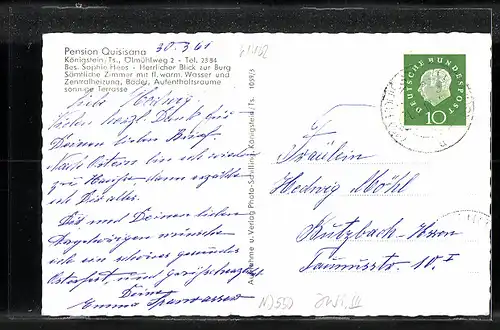 Pension Quisisana
Königstein, Ts., Ölmühlweg 2 - Tel. 23 84
Bes. Sophie Hees - Herrlicher Blick zur Burg
Sämtliche Zimmer mit fl. warm. Wasser und
Zentralheizung, Bäder, Aufenthaltsräume
sonnige Terrasse
30.3.61
Liebe Hedwig!
Vielen herzl. Dank für
Deinen lieben Brief.
Nach Ostern bin ich wieder
zu Hause, dann erzähle
ich Dir alles.
Dir und Deinen lieben
Angehörigen wünsche
ich ein schönes gesundes
Osterfest, und
Deine
Emma
Aufnahme u. Verlag Photo- Königstein/Ts.
DEUTSCHE BUNDESPOST
10
Fräulein
Hedwig Möhl
Butzbach-Hessen
Taunusstr. 10 I